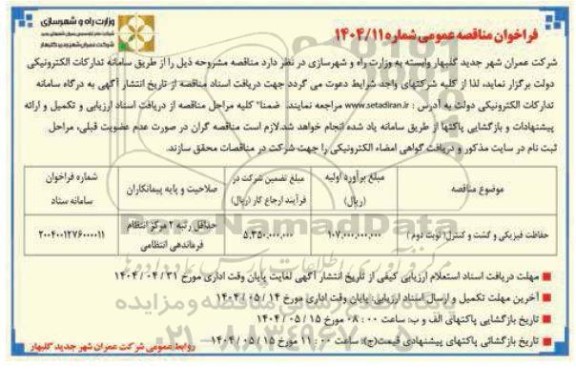 وزارت راه و شهرسازی
شرکت عمران شهر جدید گلبهار
فراخوان مناقصه عمومی شماره ۱۴۰۴/۱۱
شرکت عمران شهر جدید گلبهار وابسته به وزارت راه و شهرسازی در نظر دارد مناقصه مشروحه ذیل را از طریق سامانه تدارکات الکترونیکی
دولت برگزار نماید، لذا از کلیه شرکتهای واجد شرایط دعوت می گردد جهت دریافت اسناد مناقصه از تاریخ انتشار آگهی به درگاه سامانه
تدارکات الکترونیکی دولت به آدرس : www.setadiran.ir مراجعه نمایند. ضمنا" کلیه مراحل مناقصه از دریافت اسناد ارزیابی و تکمیل و ارائه
پیشنهادات و بازگشایی پاکتها از طریق سامانه یاد شده انجام خواهد شد. لازم است مناقصه گران در صورت عدم عضویت قبلی، مراحل
ثبت نام در سایت مذکور و دریافت گواهی امضاء الکترونیکی را جهت شرکت در مناقصات محقق سازند.
موضوع مناقصه
مبلغ برآورد اولیه (ریال)
مبلغ تضمین شرکت در فرآیند ارجاع کار (ریال)
صلاحیت و پایه پیمانکاران
شماره فراخوان سامانه ستاد
حفاظت فیزیکی و گشت و کنترل( نوبت دوم )
۱۰۷,۰۰۰,۰۰۰,۰۰۰
۵,۳۵۰,۰۰۰,۰۰۰
حداقل رتبه ۲ مرکز انتظام فرماندهی انتظامی
۲۰۰۴۰۰۱۲۷۶۰۰۰۰۱۱
مهلت دریافت اسناد استعلام ارزیابی کیفی از تاریخ انتشار آگهی لغایت پایان وقت اداری مورخ ۳۱ / ۰۴ / ۱۴۰۴
آخرین مهلت تکمیل و ارسال اسناد ارزیابی: پایان وقت اداری مورخ ۱۴ / ۰۵ / ۱۴۰۴
تاریخ بازگشایی پاکتهای الف و ب: ساعت ۰۰ : ۰۸ مورخ ۱۵ / ۰۵ / ۱۴۰۴
تاریخ بازگشائی پاکتهای پیشنهادی قیمت(ج): ساعت ۰۰ : ۱۱ مورخ ۱۵ / ۰۵ / ۱۴۰۴
روابط عمومی شرکت عمران شهر جدید گلبهار
ParsNamadData
۰۲۱-۸۸۳۴۹۶۷۰-۵